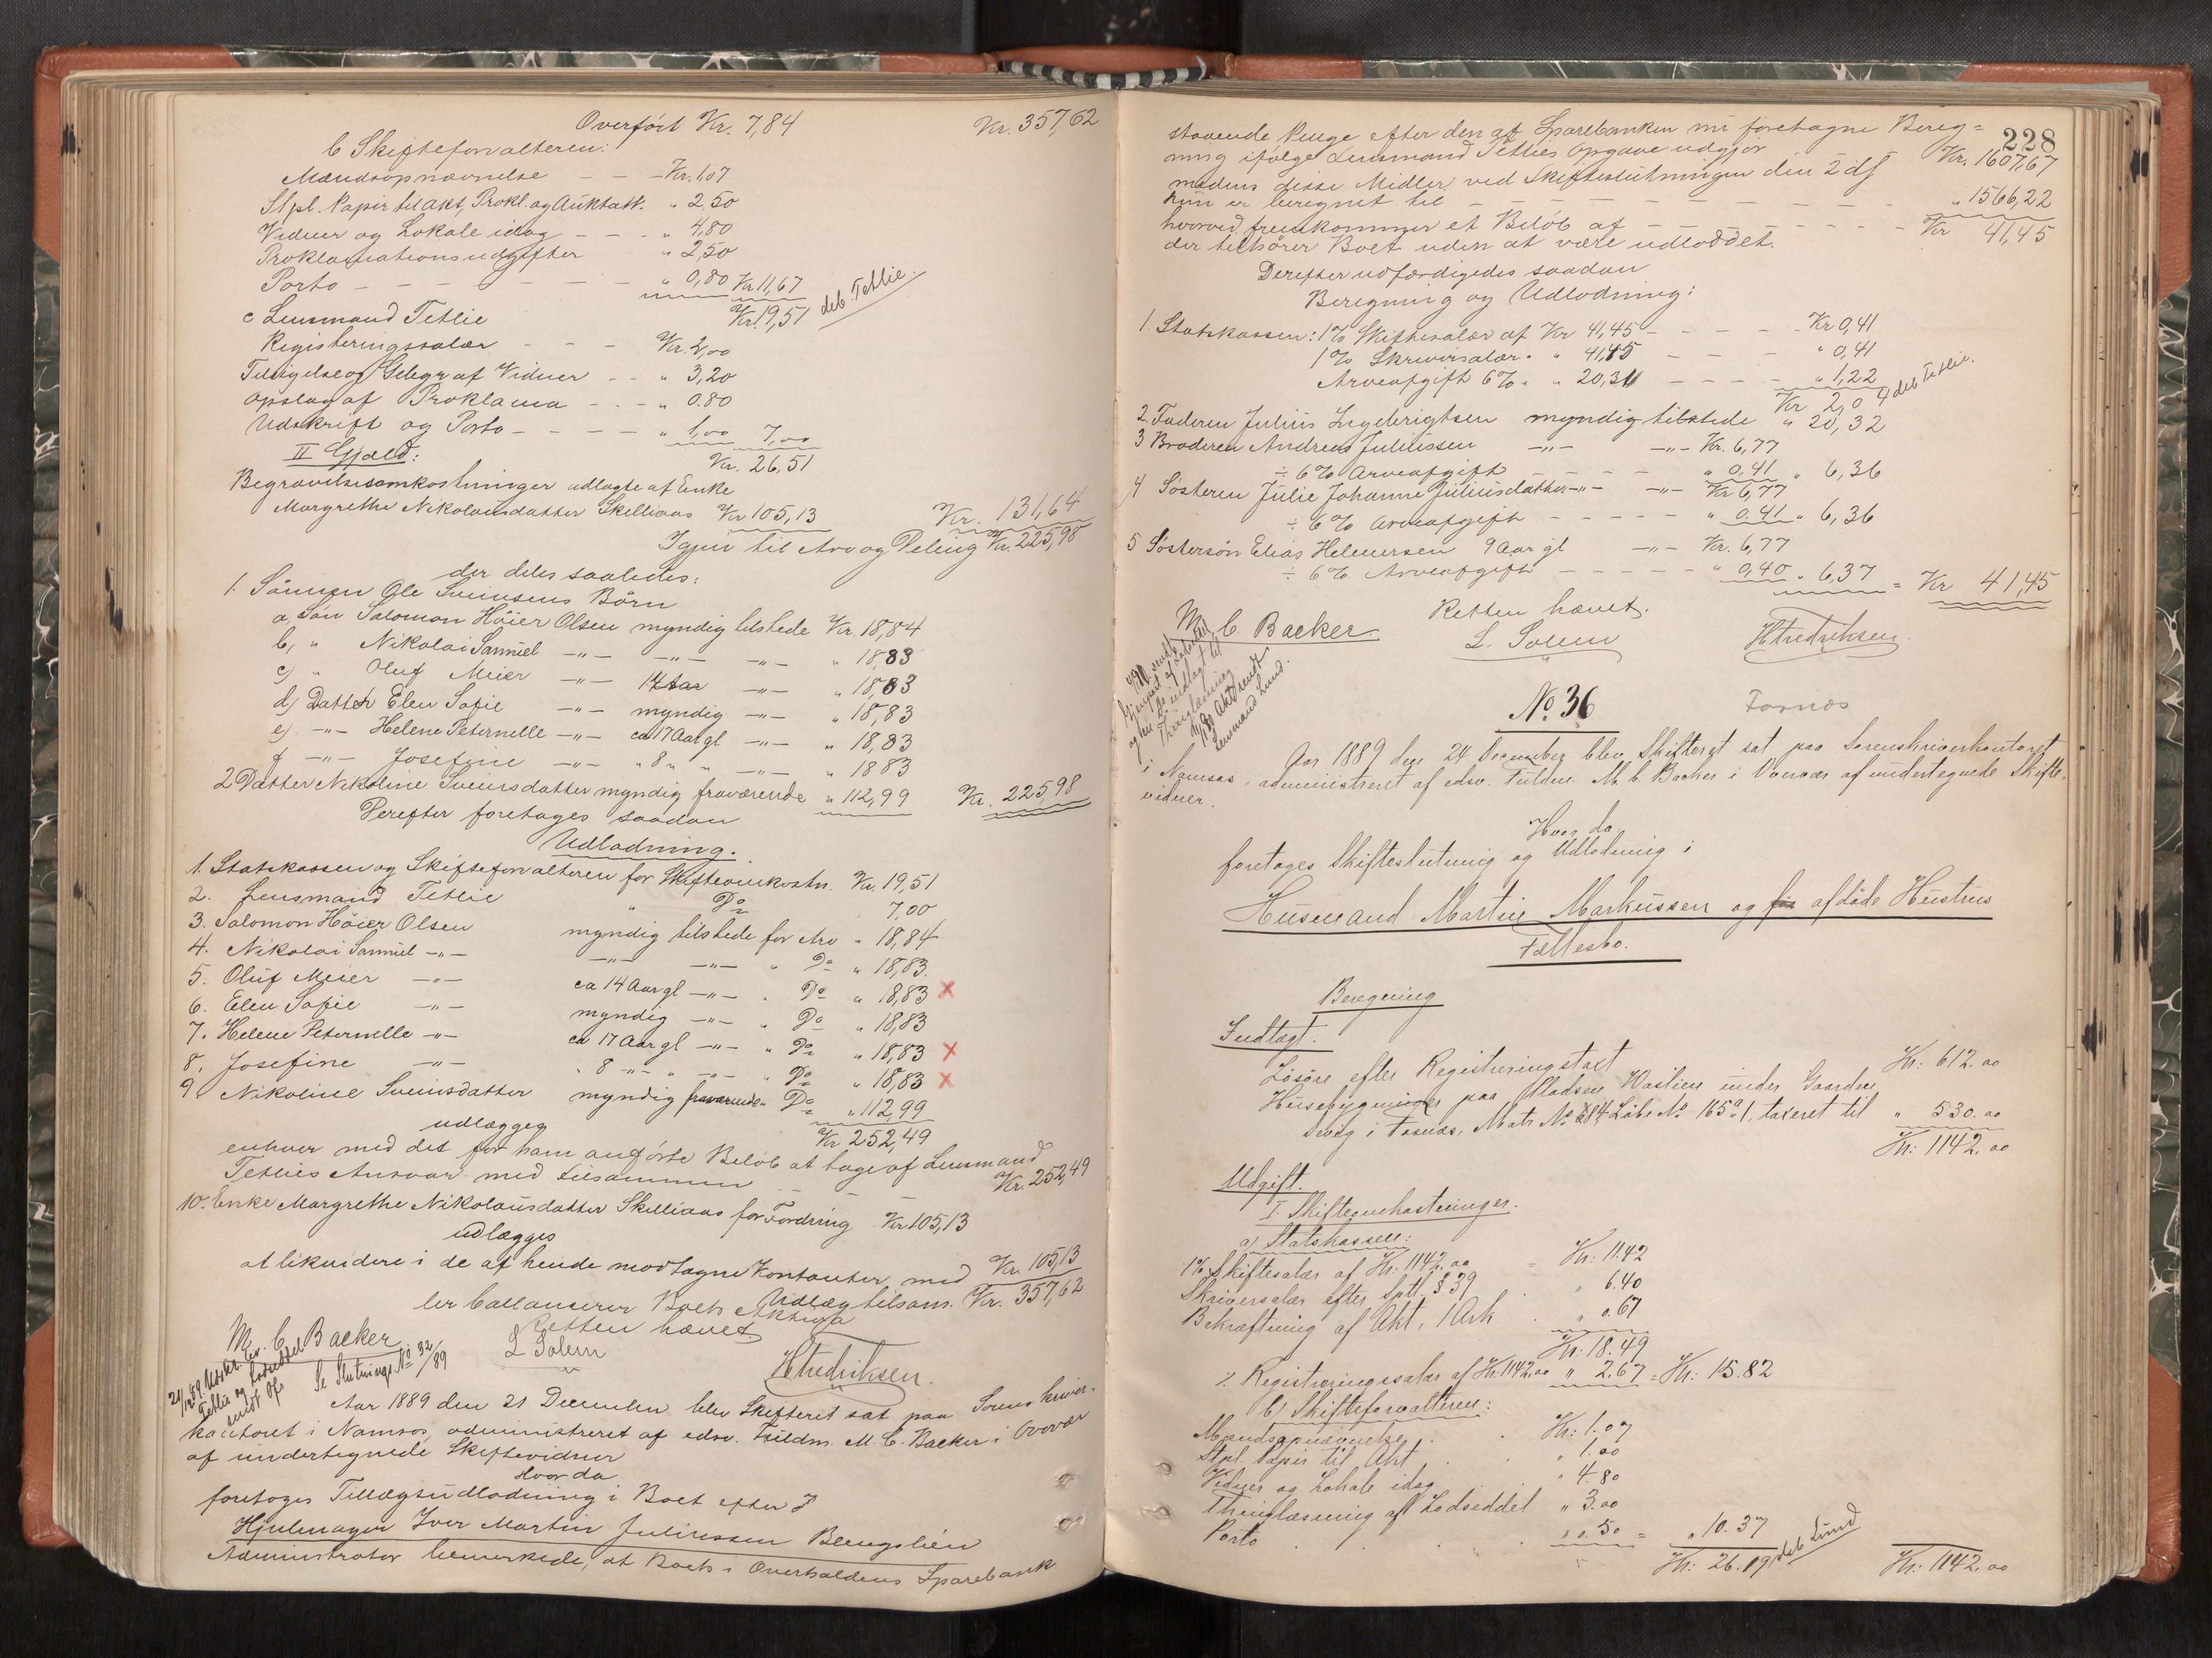 Overført Kr. 7,84 Kr. 357,62
b Skifteforvalteren:
Mændsopnævnelse - - - Kr. 1,07
Stpl. Papir til Akt, Prokl. og Auktatt. " 2,50
Vidner og Lokale idag - - - " 4,80
Proklamationsudgifter " 2,50
Porto - - - - - - " 0,80 Kr 11,67
Kr. 19,51 deb. Tetlie.
c Lensmand Tetlie
Registeringssalær - - - Kr. 2,00
Tilsigelse og Gebyr af Vidner - - " 3,20
Opslag af Proklama - - - " 0.80
Udskrift og Porto - - - - " 1,00 7,00
II Gjæld: Kr. 26,51
Begravelsesomkostninger udlagte af Enke
Margrethe Nikolausdatter Skilliaas Kr 105,13 Kr. 131,64
Igjen til Arv og Deling Kr. 225,98
der deles saaledes:
1. Sönnen Ole Svensens Börn
a, Sön Salomon Höier Olsen myndig tilstede Kr. 18,84
b, " Nikolai Samuel -"- -"- -"- " 18,83
c) " Oluf Meier -"- 14 Aar -"- " 18,83
d) Datter Elen Sofie -"- myndig -"- " 18,83
e) -"- Helene Peternelle -"- ca 17 Aar gl -"- " 18,83
f -"- Josefine -"- " 8 " " -"- " 18 83
2 Datter Nikoline Svensdatter myndig fraværende " 112,99 Kr. 225,98
Derefter foretages saadan
Udlodning.
1. Statskassen og Skifteforvalteren for Skifteomkostn. Kr. 19,51
2. Lensmand Tetlie " Do 7,00
3. Salomon Höier Olsen myndig tilstede for Arv " 18,84
4. Nikolai Samuel -"- -"- -"- " Do " 18,83.
5. Oluf Meier -"- ca 14 Aar gl -"- " Do " 18,83 x
6. Elen Sofie -"- myndig -"- " Do " 18,83
7. Helene Peternelle -"- ca 17 Aar gl -"- " Do " 18,83 x
8. Josefine -"- " 8 -"- " -"- " Do " 18,83 x
9 Nikoline Svensdatter myndig fraværende " Do " 112,99
udlægges Kr 252,49
enhver med det for ham anførte Beløb at tage af Lensmand
Tetlies Ansvar med tilsammen - - - Kr. 252,49
10. Enke Margrethe Nikolausdatter Skilliaas for Fordring Kr 105,13
udlægges
at likvidere i de af hende modtagne Kontanter med Kr. 105,13
Udlæg tilsam. Kr. 357,62
der ballancerer Boets Aktiva
Retten hævet.
M. C. Backer L Solem HFredriksen.
Se Slutning No 32/89
Aar 1889 den 21 December blev Skifteret sat paa Sorenskriver-
kontoret i Namsos, administreret af edsv. Fuldm. M. C. Backer i Overvær
af undertegnede Skiftevidner
Hvor da
foretoges Tillægsudlodning i Boet efter
Hjulmager Iver Martin Juliussen Bengslien
Administrator bemerkede, at Boets i Overhaldens Sparebank
228
staaende Penge efter den af Sparebanken nu foretagne Bereg=
ning ifølge Lensmand Tetlies Opgave udgjør Kr. 1607,67
medens disse Midler ved Skifteslutningen den 2 ds
kun er beregnet til - - - - - - - " 1566,22
hvorved fremkommer et Beløb af - - - - - Kr 41,45
der tilhører Boet uden at være udloddet.
Derefter udfærdigedes saadan
Beregning og Udlodning:
1. Statskassen: 1% Skiftesalær af Kr 41,45 - - - - Kr 0,41
1% Skriversalær " " 41,45 - - - " 0,41
Arveafgift 6% " " 20,31 - - - - " 1,22
Kr 2,04 deb Tetlie.
2. Faderen Julius Ingebrigtsen myndig tilstede " 20,32
3 Broderen Andreas Juliussen -"- -"- Kr. 6,77
÷ 6% Arveafgift - - - - " 0,41 " 6,36
4 Søsteren Julie Johanne Juliusdatter -"- -"- Kr 6,77
÷ 6% Arveafgift - - - - - " 0.41 " 6,36
5 Søstersøn Elias Helmersen 9 Aar gl -"- Kr. 6,77
÷ 6% Arveafgift - - - - - " 0,40 " 6,37 = Kr 41,45
Retten hævet.
M. C. Backer. L. Solem HFredriksen.
No. 36 Fosnæs
Aar 1889 den 24 December blev Skifteret sat paa Sorenskriverkontoret
i Namsos, administreret af edsv. Fuldm. M. C. Backer i Overvær af undertegnede Skifte-
vidner.
Hvor da
foretages Skifteslutning og Udlodning i
Husmand Martin Markussen og afdøde Hustrus
Fællesbo.
Beregning
Indtægt.
Løsøre efter Registreringstaxt Kr: 612.00
Husebygninger paa Pladsen under Gaarden
i Fosnæs, Matr. No 684 Löbe No 165a1, taxeret til " 530.00
Kr: 1142.00
Udgift.
I. Skifteomkostninger.
a) Statskassen:
1% Skiftesalær af Kr: 1142.00 = Kr: 11.42
Skriversalær efter Sptl. § 39 " 6.40
Bekræftning af Akt, 1 Ark " 0.67
Kr: 18.49
÷ Registreringssalær af Kr: 1142.00 " 2.67 = Kr: 15.82
b) Skifteforvalteren:
Mændsopnævnelse . . Kr: 1.07
Stpl. Papir til Akt . . " 1.00
Vidner og Lokale idag " 4.80
Thinglæsning af Lodseddel " 3.00
Porto . . . " 0.50 = " 10.37
Kr: 26.19 deb Lund Kr: 1142.00